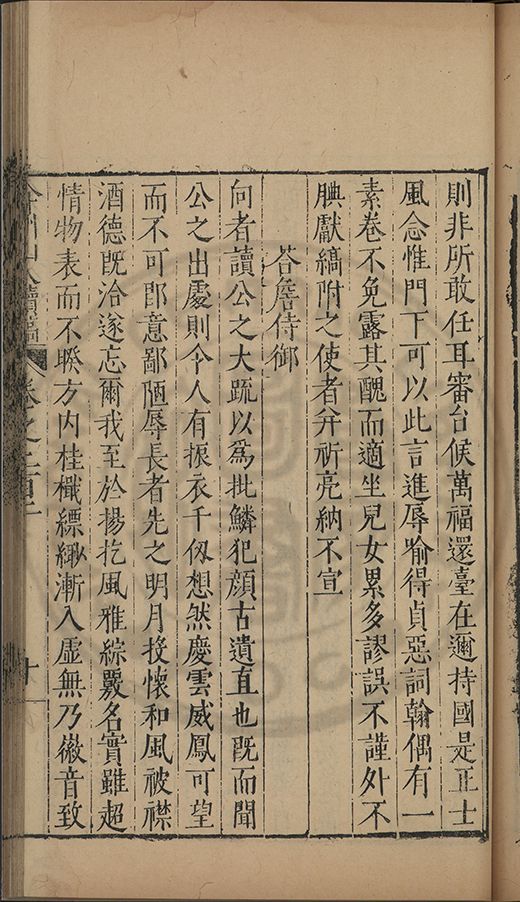 則非所敢任耳審台候萬福還臺在邇持國是正士
風念惟門下可以此言進辱喻得貞惡詞翰偶有一
素卷不免露其醜而適坐兒女累多謬誤不謹外不
腆獻縞附之使者幷祈亮納不宣
荅詹侍御
向者讀公之大疏以爲批鱗犯顏古遺直也旣而聞
公之出處則令人有振衣千仭想然慶雲威鳳可望
而不可卽意鄙陋辱長者先之明月投懷和風被襟
酒德旣洽遂忘爾我至於揚扢風雅綜覈名實雖超
情物表而不暌方内桂檝縹緲漸入虛無乃徽音致
人續稿 卷之一百
十